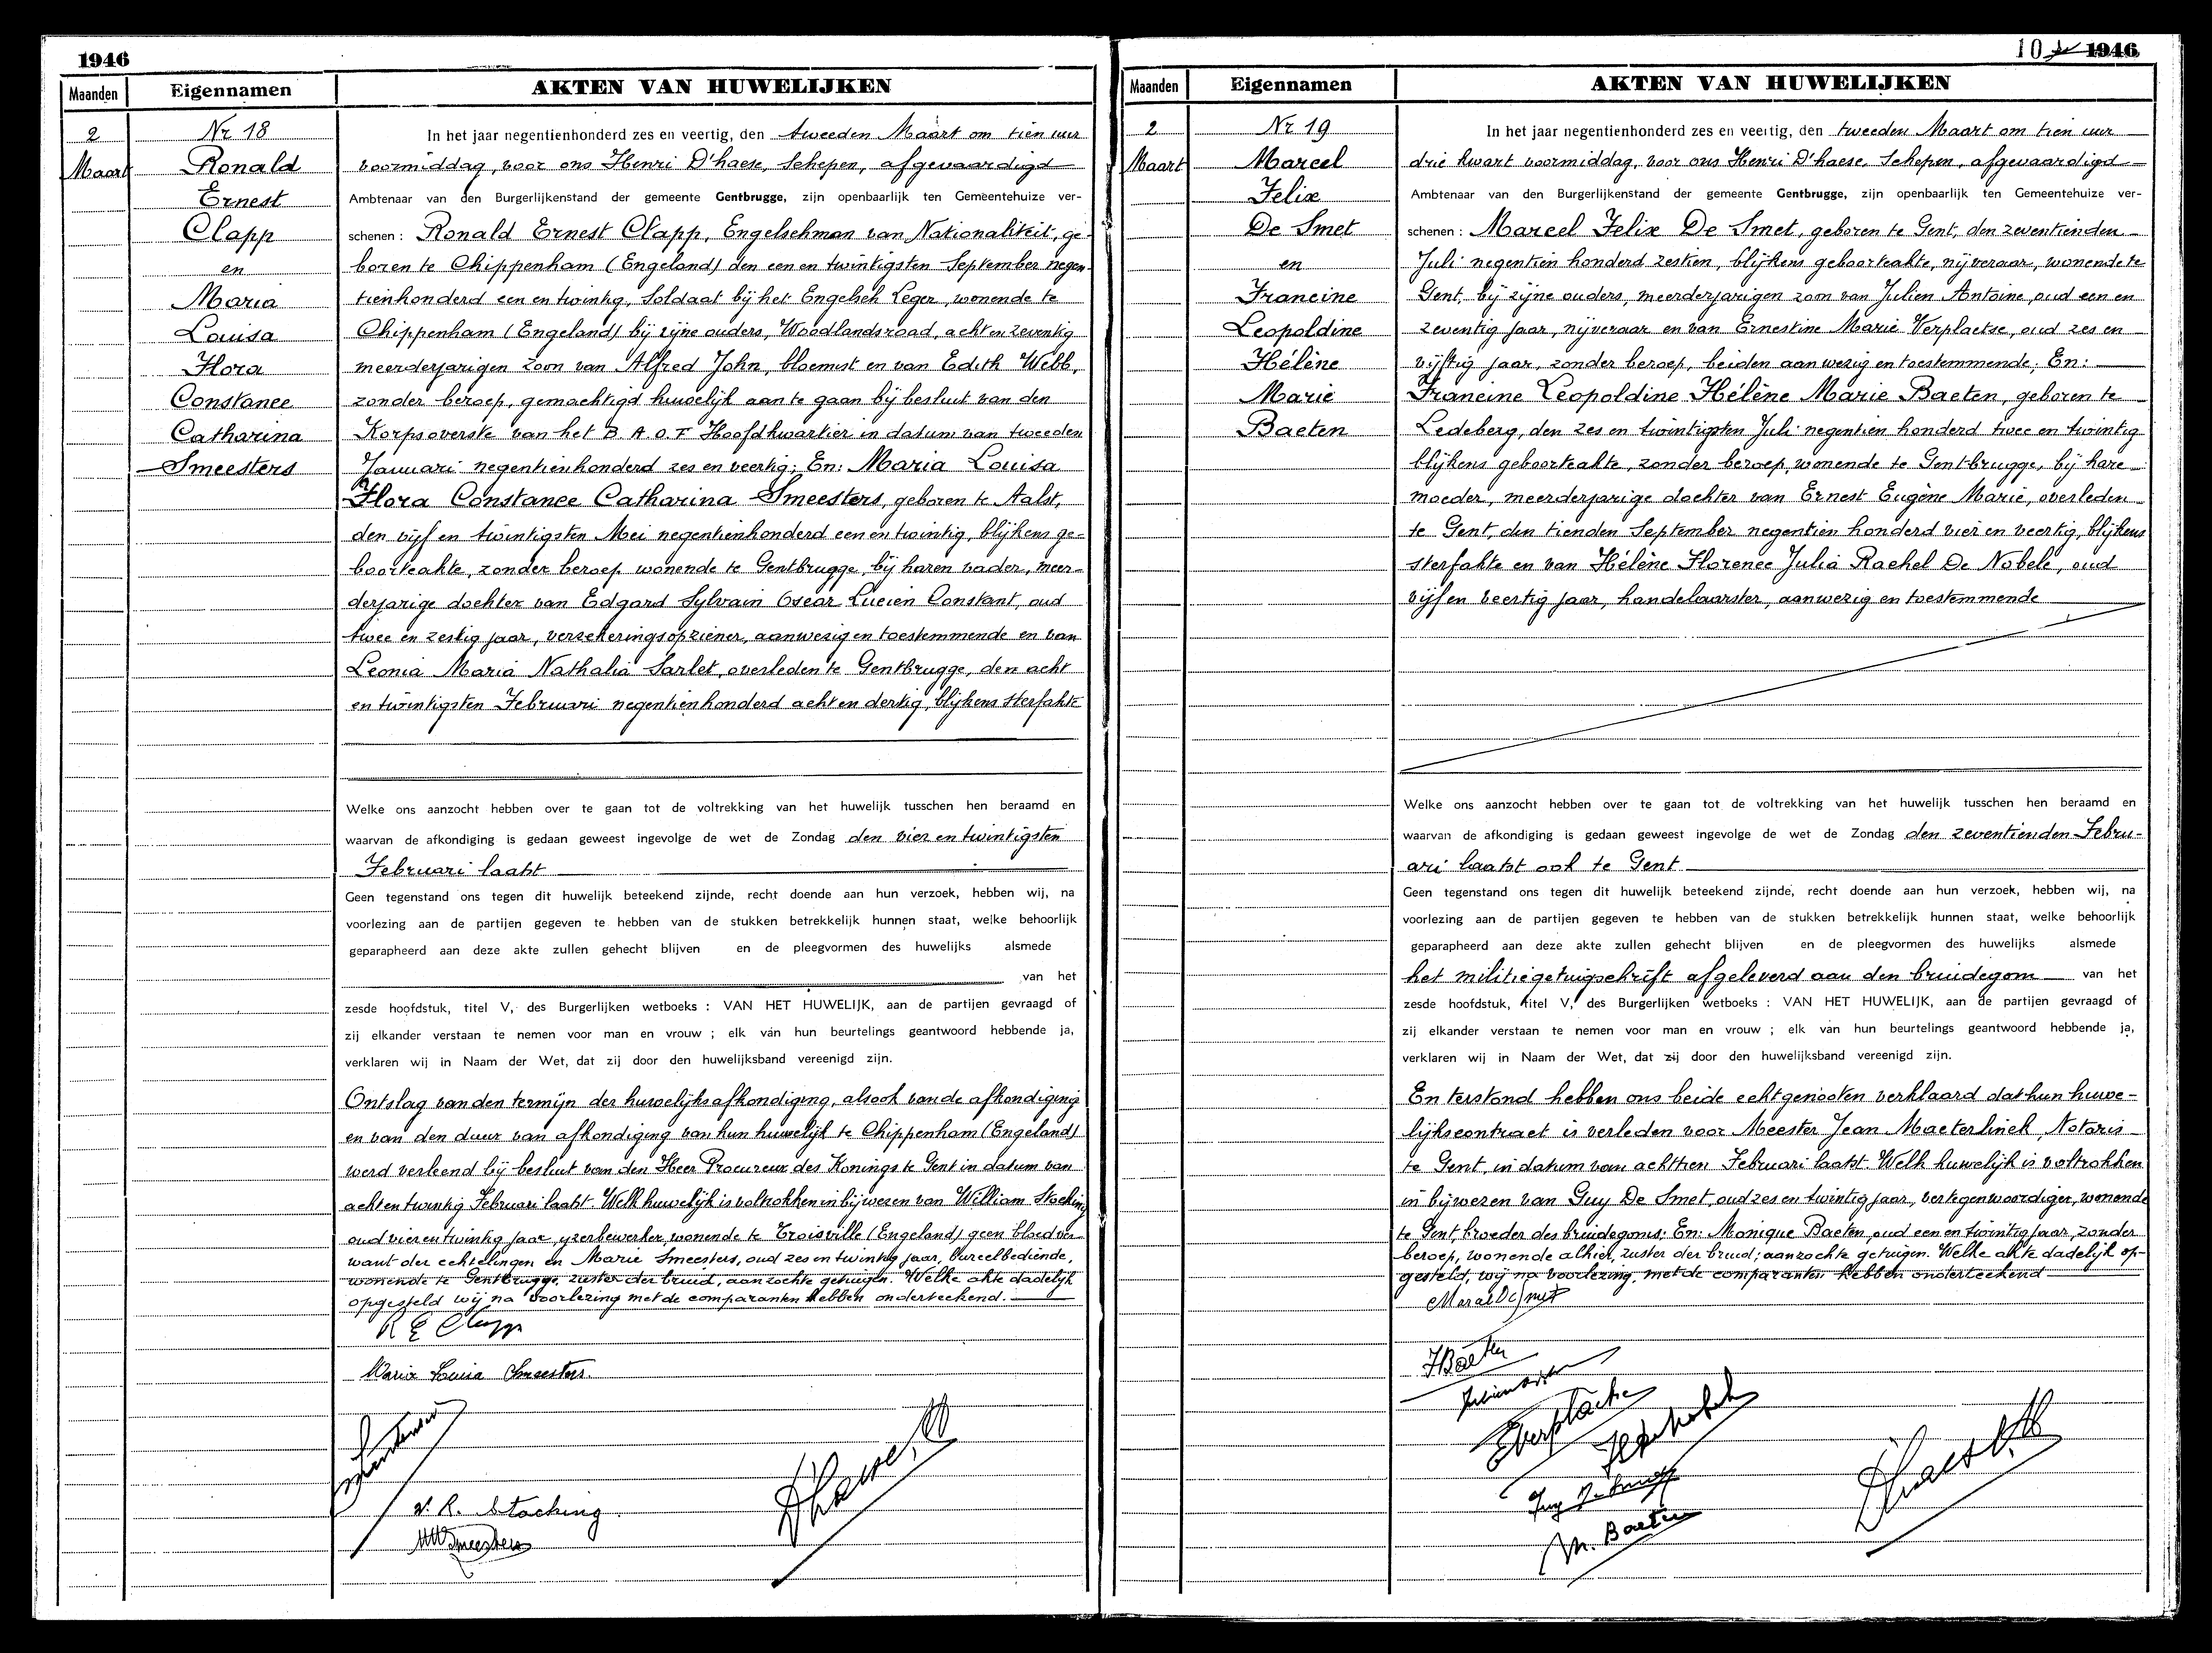 1946
Maanden
Eigennamen
AKTEN VAN HUWELIJKEN
2
Maart
Nr 18
Ronald
Ernest
Clapp
en
Maria
Louisa
Flora
Constance
Catharina
Smeesters
In het jaar negentienhonderd zes en veertig, den tweeden Maart om tien uur
voormiddag, voor ons Henri D'haese, Schepen, afgevaardigd
Ambtenaar van den Burgerlijkenstand der gemeente Gentbrugge, zijn openbaarlijk ten Gemeentehuize ver-
schenen : Ronald Ernest Clapp, Engelschman van Nationaliteit, ge-
boren te Chippenham (Engeland) den een en twintigsten September negen-
tienhonderd een en twintig, Soldaat bij het Engelsch Leger, wonende te
Chippenham (Engeland) bij zijne ouders, Woodlandsroad, acht en zeventig
meerderjarigen zoon van Alfred John, bloemist en van Edith Webb,
zonder beroep, gemachtigd huwelijk aan te gaan bij besluit van den
Korpsoverste van het B. A. O. F Hoofdkwartier in datum van tweeden
Januari negentienhonderd zes en veertig; En: Maria Louisa
Flora Constance Catharina Smeesters, geboren te Aalst,
den vijf en twintigsten Mei negentienhonderd een en twintig, blijkens ge-
boorteakte, zonder beroep wonende te Gentbrugge, bij haren vader, meer-
derjarige dochter van Edgard Sylvain Oscar Lucien Constant, oud
twee en zestig jaar, verzekeringsopziener, aanwezig en toestemmende en van
Leonia Maria Nathalia Sarlet, overleden te Gentbrugge, den acht
en twintigsten Februari negentienhonderd acht en dertig, blijkens sterfakte
Welke ons aanzocht hebben over te gaan tot de voltrekking van het huwelijk tusschen hen beraamd en
waarvan de afkondiging is gedaan geweest ingevolge de wet de Zondag den vier en twintigsten
Februari laatst
Geen tegenstand ons tegen dit huwelijk beteekend zijnde, recht doende aan hun verzoek, hebben wij, na
voorlezing aan de partijen gegeven te hebben van de stukken betrekkelijk hunnen staat, welke behoorlijk
geparapheerd aan deze akte zullen gehecht blijven en de pleegvormen des huwelijks alsmede
van het
zesde hoofdstuk, titel V, des Burgerlijken wetboeks : VAN HET HUWELIJK, aan de partijen gevraagd of
zij elkander verstaan te nemen voor man en vrouw ; elk van hun beurtelings geantwoord hebbende ja,
verklaren wij in Naam der Wet, dat zij door den huwelijksband vereenigd zijn.
Ontslag van den termijn der huwelijksafkondiging, alsook van de afkondiging
en van den duur van afkondiging van hun huwelijk te Chippenham (Engeland)
werd verleend bij besluit van den Heer Procureur des Konings te Gent in datum van
acht en twintig Februari laatst. Welk huwelijk is voltrokken in bijwezen van William Stocking
oud vier en twintig jaar, yzerbewerker, wonende te Troisville (Engeland) geen bloedver-
want der echtelingen en Marie Smeesters, oud zes en twintig jaar, bureelbediende,
wonende te Gentbrugge, zuster der bruid, aanzochte getuigen. Welke akte dadelijk
opgesteld wij na voorlezing met de comparanten hebben onderteekend.
R E Clapp
Maria Louisa Smeesters.
W. R. Stocking
MW Smeesters
10 1946
Maanden
Eigennamen
AKTEN VAN HUWELIJKEN
2
Maart
Nr 19
Marcel
Felix
De Smet
en
Francine
Leopoldine
Hélène
Marie
Baeten
In het jaar negentienhonderd zes en veertig, den tweeden Maart om tien uur
drie kwart voormiddag, voor ons Henri D'haese, Schepen, afgevaardigd
Ambtenaar van den Burgerlijkenstand der gemeente Gentbrugge, zijn openbaarlijk ten Gemeentehuize ver-
schenen : Marcel Felix De Smet, geboren te Gent, den zeventienden
Juli negentien honderd zestien, blijkens geboorteakte, nijveraar, wonende te
Gent, bij zijne ouders, meerderjarigen zoon van Julien Antoine, oud een en
zeventig jaar, nijveraar en van Ernestine Marie Verplaetse, oud zes en
vijftig jaar, zonder beroep, beiden aanwezig en toestemmende; En:
Francine Leopoldine Hélène Marie Baeten, geboren te
Ledeberg, den zes en twintigsten Juli negentien honderd twee en twintig
blijkens geboorteakte, zonder beroep, wonende te Gentbrugge, bij hare
moeder, meerderjarige dochter van Ernest Eugène Marie, overleden
te Gent, den tienden September negentien honderd vier en veertig, blijkens
sterfakte en van Hélène Florence Julia Rachel De Nobele, oud
vijf en veertig jaar, handelaarster, aanwezig en toestemmende
Welke ons aanzocht hebben over te gaan tot de voltrekking van het huwelijk tusschen hen beraamd en
waarvan de afkondiging is gedaan geweest ingevolge de wet de Zondag den zeventienden Febru-
ari laatst ook te Gent
Geen tegenstand ons tegen dit huwelijk beteekend zijnde, recht doende aan hun verzoek, hebben wij, na
voorlezing aan de partijen gegeven te hebben van de stukken betrekkelijk hunnen staat, welke behoorlijk
geparapheerd aan deze akte zullen gehecht blijven en de pleegvormen des huwelijks alsmede
het militiegetuigschrift afgeleverd aan den bruidegom van het
zesde hoofdstuk, titel V, des Burgerlijken wetboeks : VAN HET HUWELIJK, aan de partijen gevraagd of
zij elkander verstaan te nemen voor man en vrouw ; elk van hun beurtelings geantwoord hebbende ja,
verklaren wij in Naam der Wet, dat zij door den huwelijksband vereenigd zijn.
En terstond hebben ons beide echtgenooten verklaard dat hun huwe-
lijkscontract is verleden voor Meester Jean Maeterlinck, Notaris
te Gent, in datum van achttien Februari laatst. Welk huwelijk is voltrokken
in bijwezen van Guy De Smet, oud zes en twintig jaar, vertegenwoordiger, wonende
te Gent, broeder des bruidegoms; En: Monique Baeten, oud een en twintig jaar, zonder
beroep, wonende alhier, zuster der bruid; aanzochte getuigen. Welke akte dadelijk op-
gesteld, wij na voorlezing, met de comparanten hebben onderteekend
Marcel De Smet
FBaeten
EVerplaetse
Guy De Smet
M. Baeten